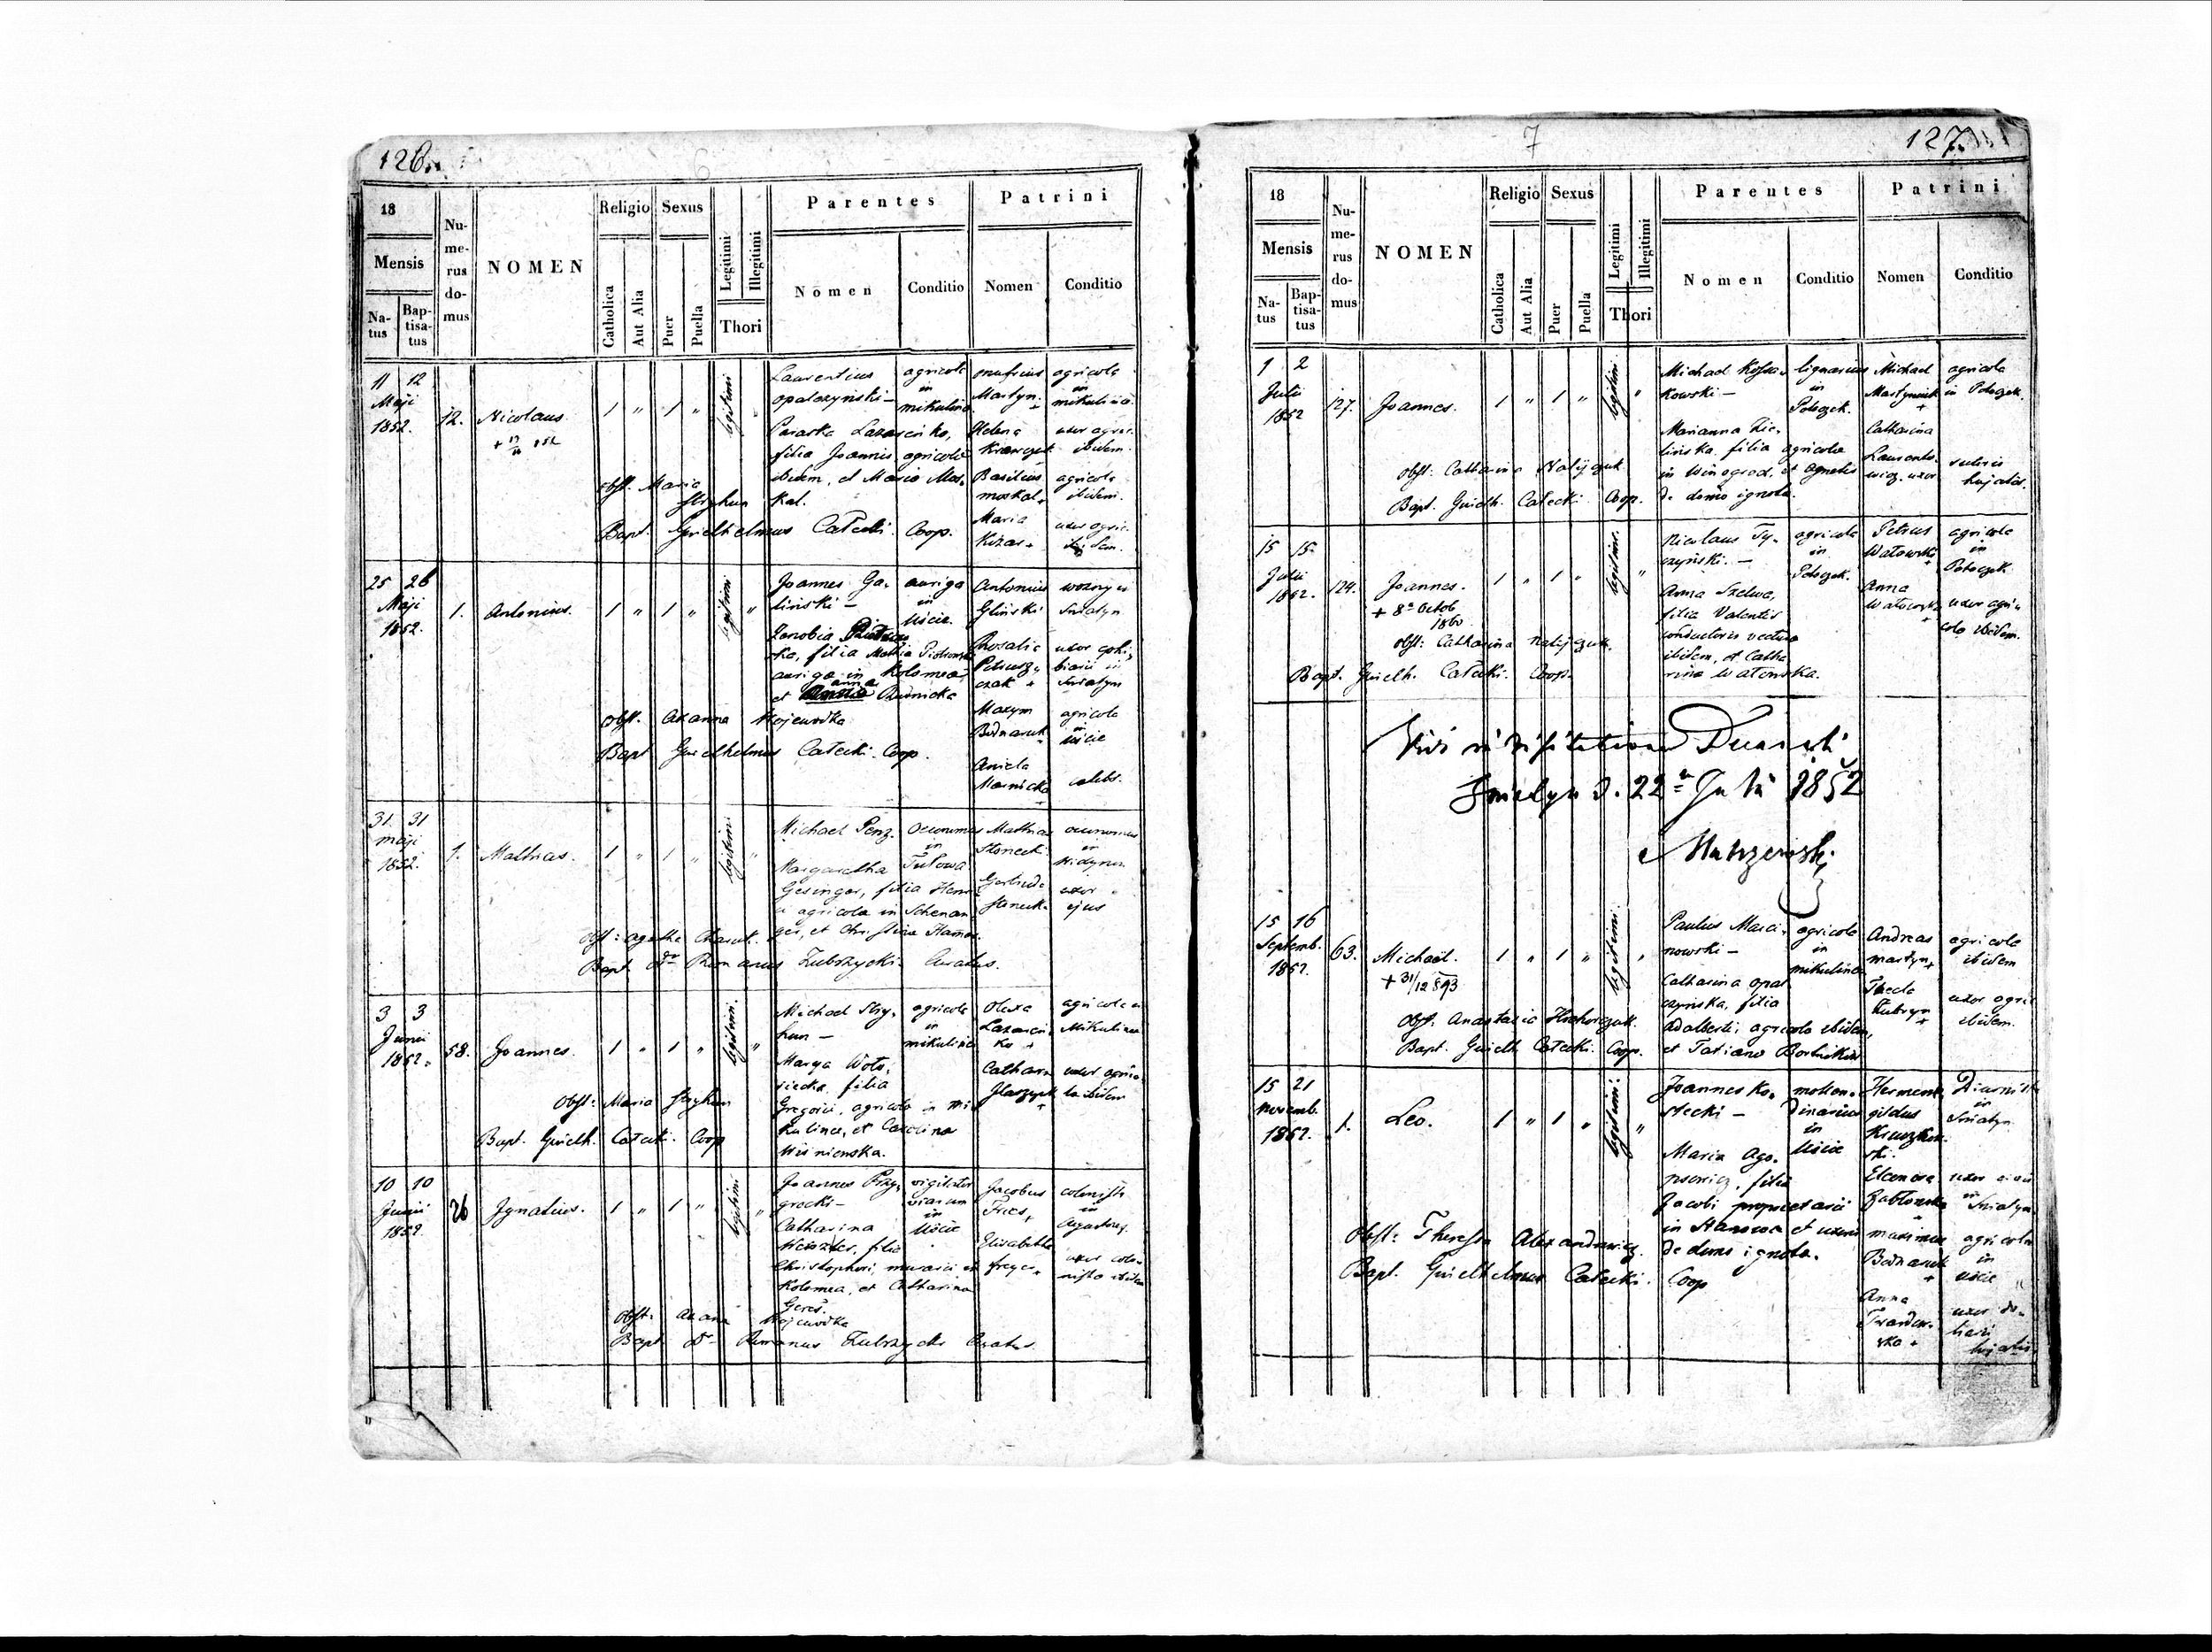 126.
6
18
Mensis
Na-
tus
Bap-
tisa-
tus
Nu-
me-
rus
do-
mus
NOMEN
Religio
Catholica
Aut Alia
Sexus
Puer
Puella
Legitimi
Illegitimi
Thori
Parentes
Nomen
Conditio
Patrini
Nomen
Conditio
11 12
Maji
1852.
12.
Nicolaus
1 " 1 "
legitimi
Laurentius
opatozyński –
Paraska Lazarenko,
filia Joannis agricola
ibidem, et Maria Mos-
kal.
agricola
in
mikulince
onufrius
Martyn. +
Helena
Krawczuk
Basilius
moskal +
Maria
Kizar +
agricola
in
mikulince
uxor agric.
ibidem.
agricola
ibidem.
uxor agric.
ibidem.
obst. Maria
Stryhun
Bapt. Guielhelmus Catecki. Coop.
25 26
Maji
1852.
1.
Antonius.
1 " 1 "
legitimi
"
Joannes Ga-
liński –
Zenobia
ska, filia Mathia
auriga in Kolomea
et anna Rudnicka
auriga
in
Uście.
Antonius
Gliński
Rosalia
Petrusz-
czak +
Maxym
Bodnaruk
Aniela
Marnicka
woźny in
Sniatyn
uxor
in
Sniatyn
agricola
in
Uście
celebs.
obst. Axanna Wojewodka
Bapt Guielhelmus Catecki. Coop.
31. 31
maji
1852.
1.
Mathias.
1 " 1 "
legitimi
"
Michael Penz.
Margaretha
Gesinger, filia
agricola in Schenan
ger, et Christina
oeconomus
in
Tulowa
Mathias
Gertruda
oeconomus
in
Widynow
uxor
ejus
obst: agatha
Bapt. Dr Romanus Zubrzycki. Curatus.
3 3
Junii
1852.
58.
Joannes.
1 " 1 "
legitimi
"
Michael Stry-
hun –
Marya Woło-
siecka filia
Gregorii, agricola in mi
kulince, et Carolina
Wiśniewska.
agricola
in
mikulince
Olexa
Lazaren-
ko +
Cathara
agricola in
Mikulince
uxor agrico-
la ibidem
Obst: Maria Stryhun
Bapt. Guielh. Catecki. Coop
10 10
Junii
1852.
26
Ignatius.
1 " 1 "
legitimi
"
Joannes Przy-
grocki –
Catharina
filia
Christophori, murarii in
Kolomea, et Catharina
Geres.
vigilator
viarum
in
Uście
Jacobus
Fries,
Elisabetha
freyer +
colonista
in
uxor colo-
nista ibidem
Obst. Axana Wojewodka
Bapt. Dr Romanus Zubrzycki Curatus.
7
127.
18
Mensis
Na-
tus
Bap-
tisa-
tus
Nu-
me-
rus
do-
mus
NOMEN
Religio
Catholica
Aut Alia
Sexus
Puer
Puella
Legitimi
Illegitimi
Thori
Parentes
Nomen
Conditio
Patrini
Nomen
Conditio
1 2
Julii
1852
127.
Joannes.
1 " 1 "
legitimi
"
Michael Kossa-
kowski –
Marianna Zie-
linska, filia agricola
in Winograd, et Agnetis
de domo ignota.
lignarius
in
Potoczek.
Michael
Martyniuk
+
Catharina
Laurento-
wicz, uxor
agricola
in Potoczek.
sutoris
hujatis.
Obst: Catharina Halijczuk
Bapt. Guielh. Catecki Coop.
15 15
Julii
1852.
124.
Joannes.
+ 8a Octob
1860
1 " 1 "
legitimi.
"
Nicolaus Ty-
czyński. –
Anna Szelwa,
filia Valentis
conductoris vectura
ibidem, et Catha
rina Watowska.
agricola
in
Potoczek.
Petrus
Watowski
+
Anna
Watowska
+
agricola
in
Potoczek
uxor agri-
cola ibidem.
obst: Catharina Halijczuk.
Bapt. Guielh. Catecki. Coop.
Vidi in visitatione Decanali
Sniatyn d. 22a Julii 1852
15 16
Septemb.
1852.
63.
Michaël.
+ 31/12 893
1 " 1 "
legitimi
"
Paulus Marci-
nowski –
Catharina opat
czyńska, filia
Adalberti, agricola ibidem,
et Tatiana
agricola
in
mikulince
Andreas
martyn +
Thecla
+
agricola
ibidem
uxor agric
ibidem.
Obst: Anastasia
Bapt. Guielh. Catecki. Coop.
15 21
novemb.
1852.
1.
Leo.
1 " 1 "
legitimi
"
Joannes Ko-
stecki –
Maria Ago-
psowicz, filia
Jacobi proprietarii
in et uxoris
de domo ignota.
molen-
dinarius
in
Uście
Hermene-
gildus
Kruszkow-
ski.
Eleonora
maximus
Bodnaruk
+
Anna
ska +
Diurnista
in
Sniatyn
uxor civis
in
Sniatyn
agricola
in
Uście
uxor do-
liarii
hujatis
Obst: Theressa Alexandrowicz.
Bapt. Guielhelmus Catecki. Coop